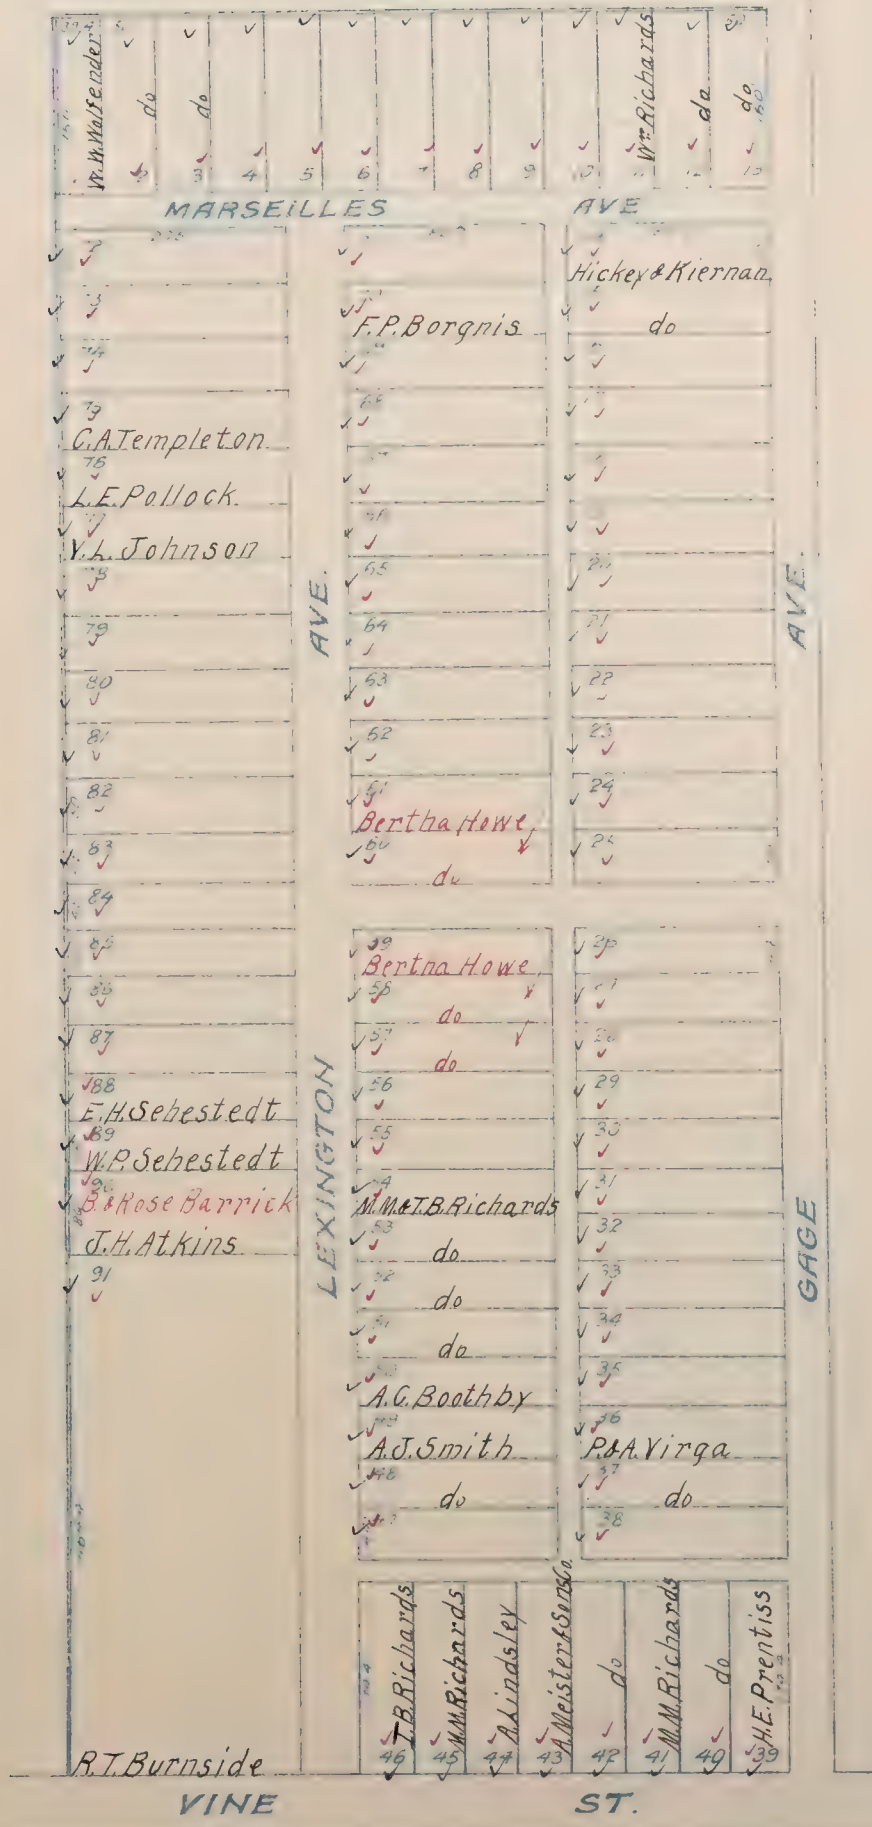 W.W. Walfender
do
do
Wm Richards
do
do
2
3
4
5
6
7
8
9
10
13
MARSEILLES AVE
C.A. Templeton
76
L.E. Pollock
V.L. Johnson
78
79
80
81
82
83
84
85
86
87
88
E.H. Sehestedt
89
W.P. Sehestedt
90
B. & Rose Barrick
J.H. Atkins
91
R.T. Burnside
LEXINGTON AVE.
F.P. Borgnis
68
66
65
64
63
62
61
Bertha Howe
60
do
59
Bertha Howe
58
do
57
do
56
55
54
M.M. & T.B. Richards
53
do
52
do
51
do
A.C. Boothby
A.J. Smith
48
do
Hickey & Kiernan
do
20
21
22
23
24
25
26
27
28
29
30
31
32
33
34
35
36
P. & A. Virga
37
do
38
GAGE AVE.
T.B. Richards
46
M.M. Richards
45
A. Lindsley
44
A. Meister & Sons Co.
43
do
42
M.M. Richards
41
do
40
H.E. Prentiss
39
VINE ST.